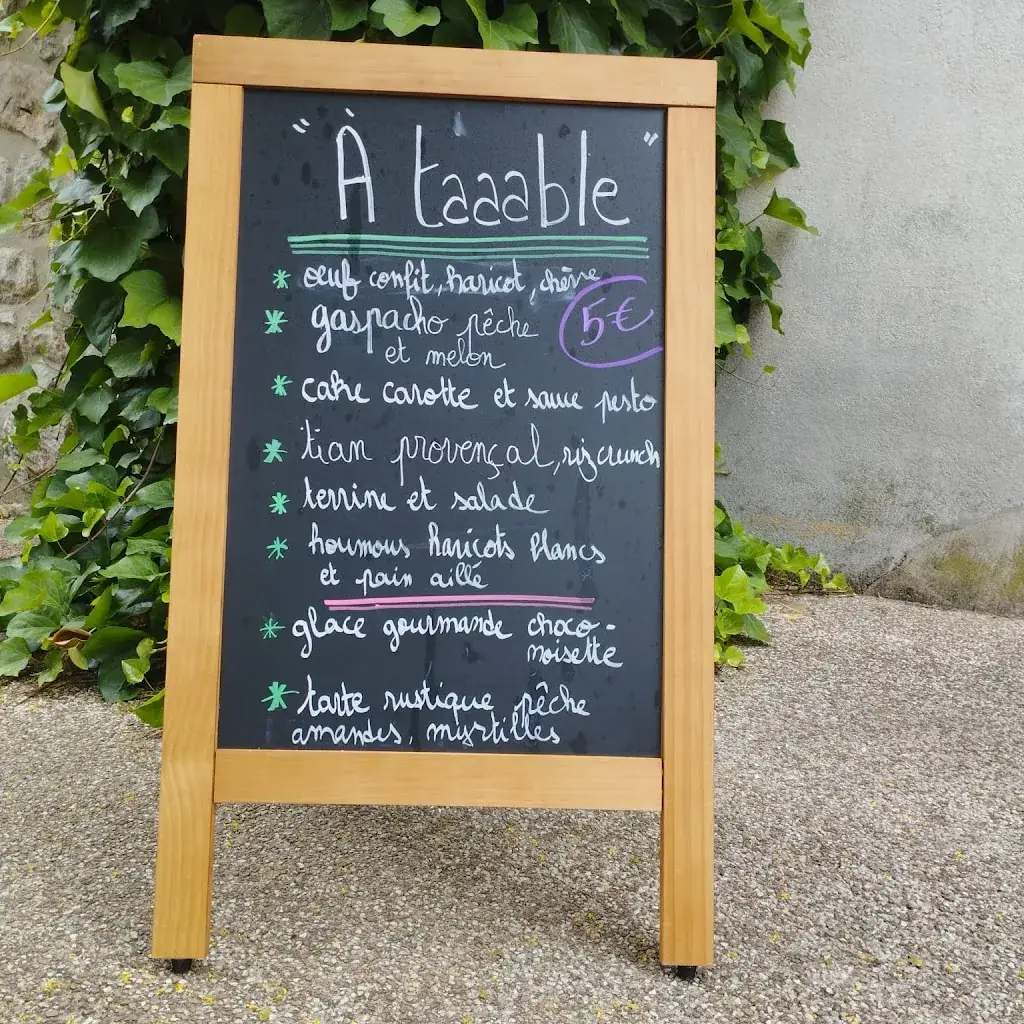 "À taaable"
* œuf confit, haricot, chèvre
5€
* gaspacho pêche
et melon
* cake carotte et sauce pesto
* tian provençal, riz crunch
* terrine et salade
* houmous haricots blancs
et pain aillé
* glace gourmande choco-
noisette
* tarte rustique pêche
amandes, myrtilles